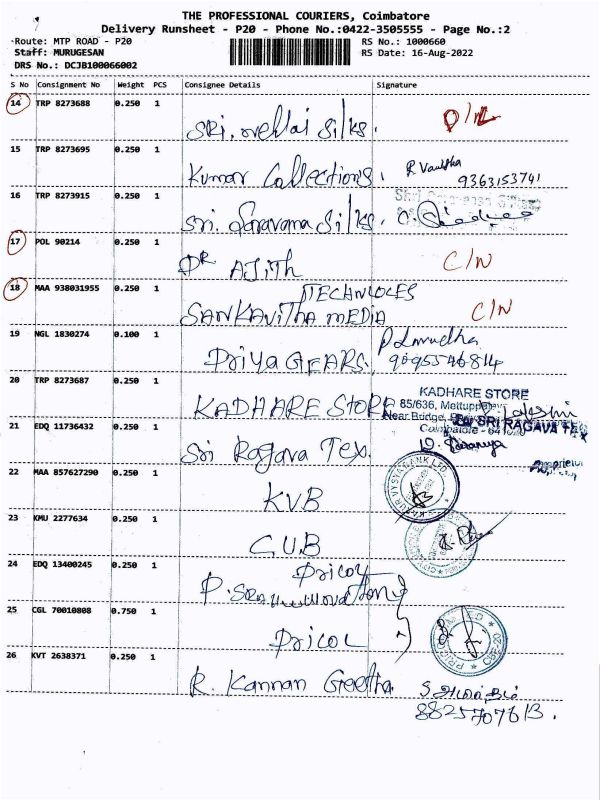 THE PROFESSIONAL COURIERS, Coimbatore
Delivery Runsheet - P20 - Phone No.:0422-3505555 - Page No.:2
Route: MTP ROAD - P20
RS No.: 1000660
Staff: MURUGESAN
RS Date: 16-Aug-2022
DRS No.: DCJB100066002
S No Consignment No Weight PCS Consignee Details Signature
14 TRP 8273688 0.250 1
Sri. vellai Silks.
15 TRP 8273695 0.250 1
Kumar Collections. 9363153741
16 TRP 8273915 0.250 1
Sri Saravana Silks.
17 POL 90214 0.250 1
DR AJITH C/N
18 MAA 938031955 0.250 1
SANKAVITHA MEDIA C/N
19 NGL 1830274 0.100 1
Priya GEARS 9095546814
20 TRP 8273687 0.250 1
KADHARE STORE
KADHARE STORE
85/636, Mettuppalayam
Near Bridge,
21 EDQ 11736432 0.250 1
SRI RAGAVA TEX
Sri Ragava Tex.
22 MAA 857627290 0.250 1
KVB
23 KMU 2277634 0.250 1
C.U.B
24 EDQ 13400245 0.250 1
Pricol
25 CGL 70010808 0.750 1
Pricol
26 KVT 2638371 0.250 1
R. Kannan Geetha
8825707613.